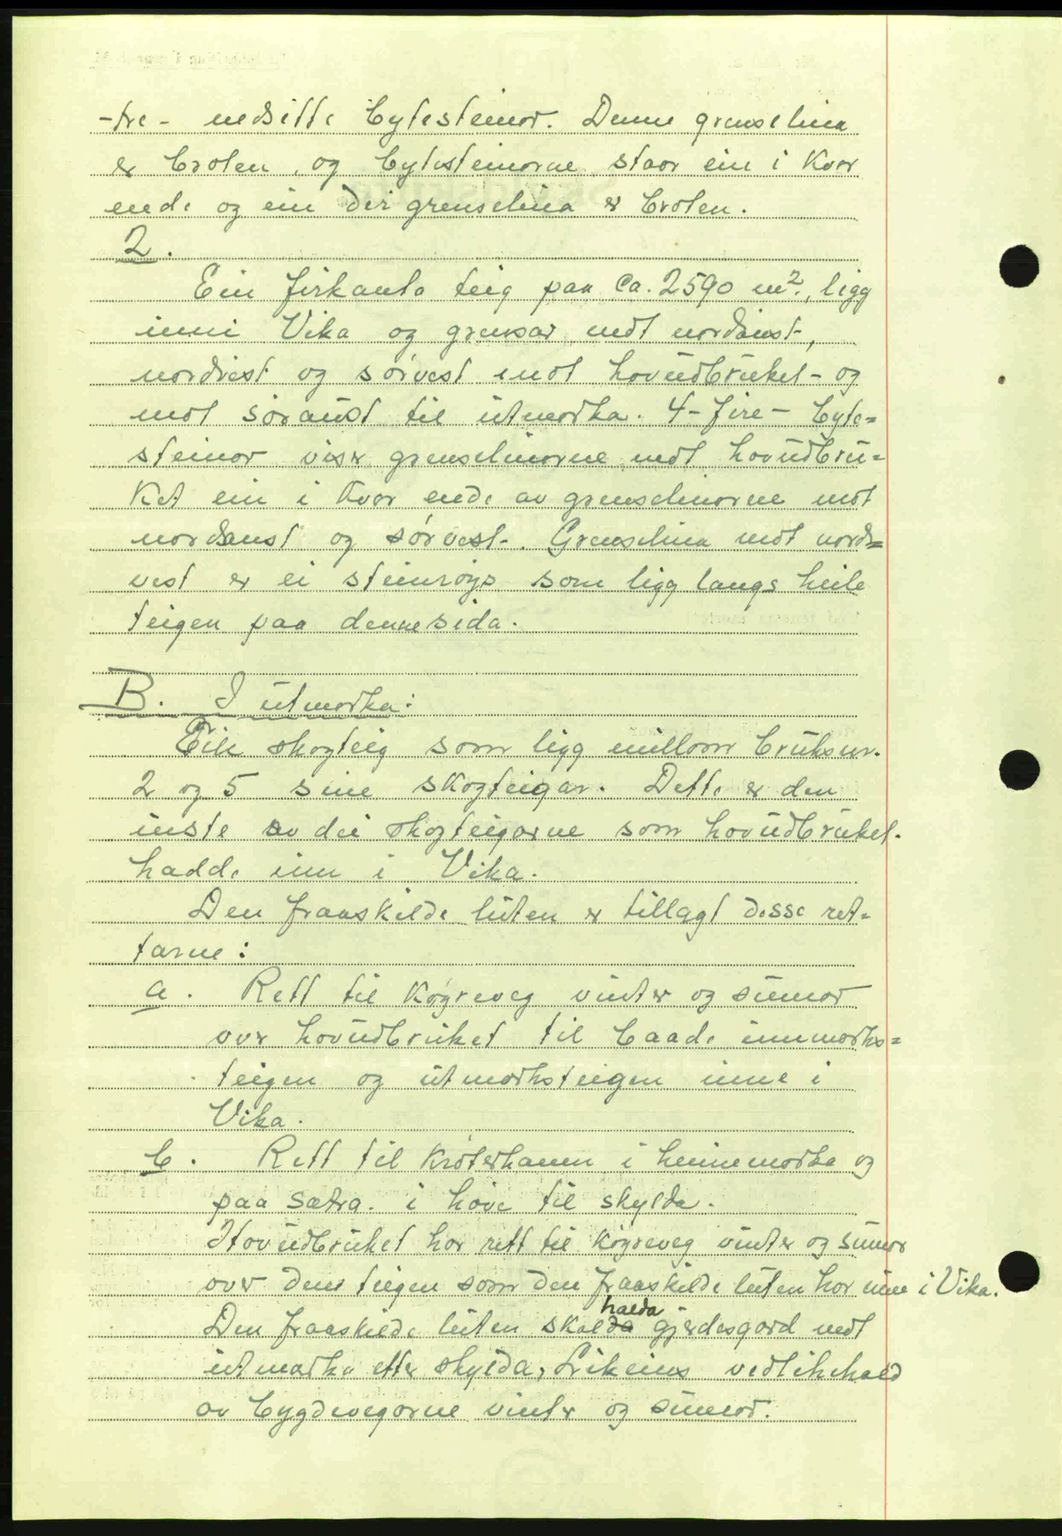 -tre- nedsette bytesteinar. Denne grenselina
er broten, og bytesteinarne staar ein i kvar
ende og ein der grenselina er broten.
2.
Ein firkanta teig paa ca. 2590 m², ligg
inni Vika og grensar mot nordaust,
nordvest og sørvest mot hovudbruket - og
mot søraust til utmarka. 4-fire- byte=
steinar viser grenselinorne mot hovudbru=
ket ein i kvar ende av grenselinorne mot
nordaust og sørvest. Grenselina mot nord=
vest er ei steinrøys som ligg langs heile
teigen paa denne sida.
B. I utmarka:
Ein skogteig som ligg millom bruksnr.
2 og 5 sine skogteigar. Dette er den
inste av dei skogteigarne som hovudbruket
hadde inn i Vika.
Den fraaskilde luten er tillagt desse ret-
tarne:
a. Rett til køyreveg vinter og sumar
over hovudbruket til baade innmarks=
teigen og utmarksteigen inne i
Vika.
b. Rett til krøterhamn i heimemarka og
paa sætra i høve til skylda.
Hovudbruket har rett til køyreveg vinter og sumar
over den teigen som den fraaskilde luten har inne i Vika.
halda
Den fraaskilde luten skal gjerdesgard mot
utmarka etter skylda, Likeins vedlikehald
av bygdevegarne vinter og sumar.